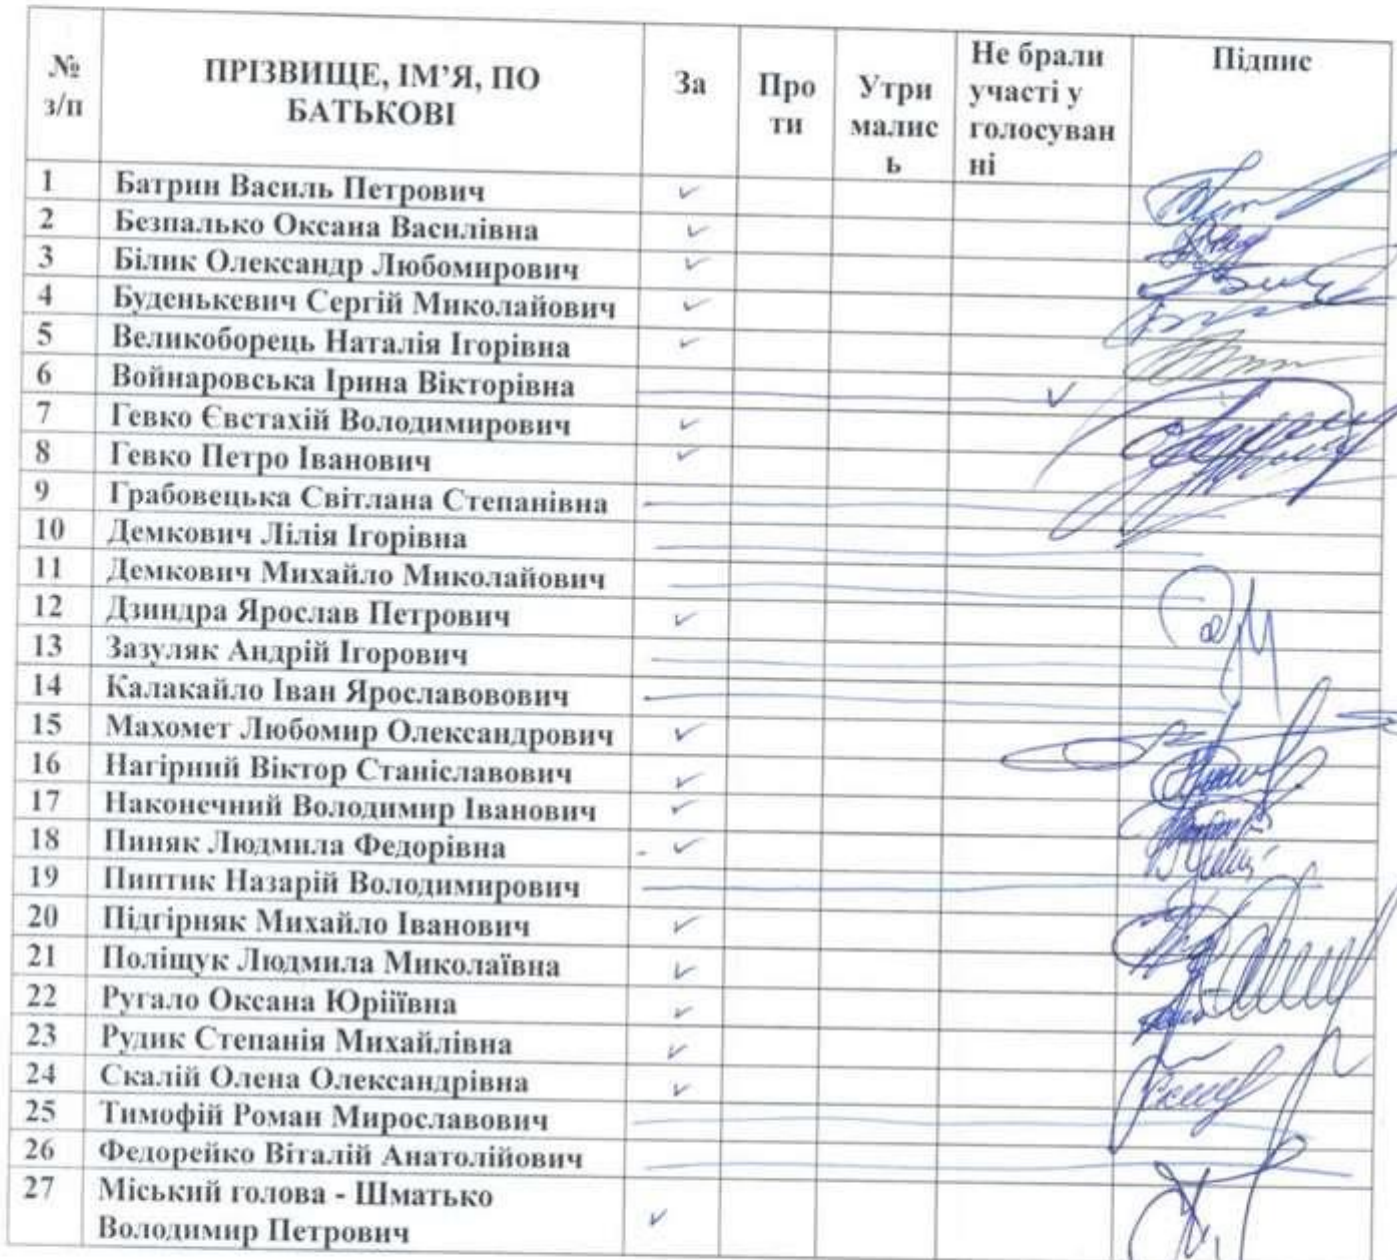 № з/п ПРІЗВИЩЕ, ІМ’Я, ПО БАТЬКОВІ За Про ти Утри малис ь Не брали участі у голосуван ні Підпис
1 Батрин Василь Петрович ✓
2 Безпалько Оксана Василівна ✓
3 Білик Олександр Любомирович ✓
4 Буденькевич Сергій Миколайович ✓
5 Великоборець Наталія Ігорівна ✓
6 Войнаровська Ірина Вікторівна ✓
7 Гевко Євстахій Володимирович ✓
8 Гевко Петро Іванович ✓
9 Грабовецька Світлана Степанівна
10 Демкович Лілія Ігорівна
11 Демкович Михайло Миколайович
12 Дзиндра Ярослав Петрович ✓
13 Зазуляк Андрій Ігорович
14 Калакайло Іван Ярославовович
15 Махомет Любомир Олександрович ✓
16 Нагірний Віктор Станіславович ✓
17 Наконечний Володимир Іванович ✓
18 Пиняк Людмила Федорівна ✓
19 Пиптик Назарій Володимирович
20 Підгірняк Михайло Іванович ✓
21 Поліщук Людмила Миколаївна ✓
22 Ругало Оксана Юріїівна ✓
23 Рудик Степанія Михайлівна ✓
24 Скалій Олена Олександрівна ✓
25 Тимофій Роман Мирославович
26 Федорейко Віталій Анатолійович
27 Міський голова - Шматько
Володимир Петрович ✓